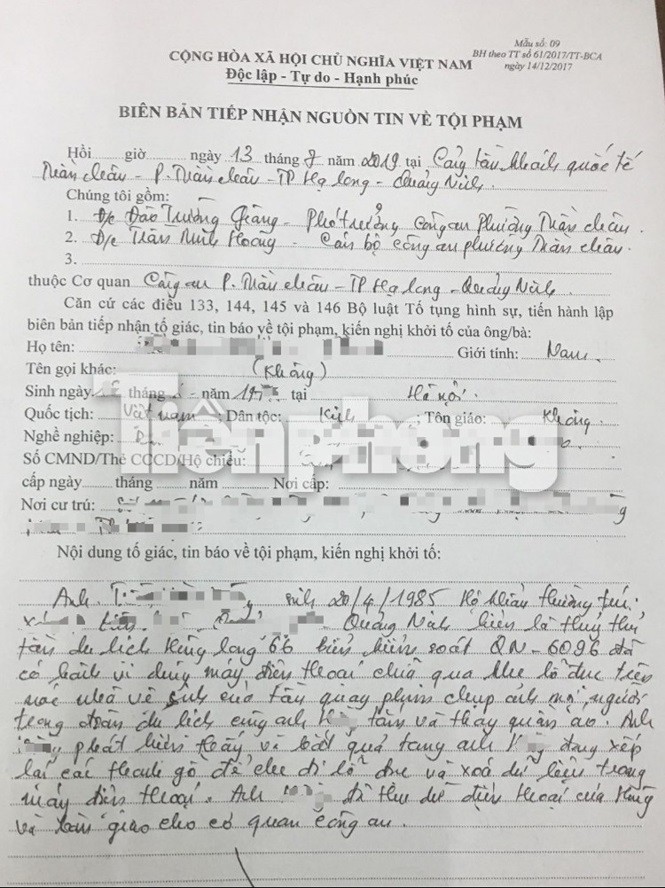 Mẫu số: 09
BH theo TT số 61/2017/TT-BCA
ngày 14/12/2017
CỘNG HÒA XÃ HỘI CHỦ NGHĨA VIỆT NAM
Độc lập - Tự do - Hạnh phúc
BIÊN BẢN TIẾP NHẬN NGUỒN TIN VỀ TỘI PHẠM
Hồi giờ ngày 13 tháng 7 năm 2019 tại Cảng tàu khách quốc tế
Tuần Châu - P. Tuần Châu - TP Hạ Long - Quảng Ninh.
Chúng tôi gồm:
1. Đ/c Đào Trường Giang - Phó trưởng công an Phường Tuần Châu.
2. Đ/c Trần Minh Hoàng - Cán bộ công an phường Tuần Châu.
3.
thuộc Cơ quan Công an P. Tuần Châu - TP Hạ Long - Quảng Ninh.
Căn cứ các điều 133, 144, 145 và 146 Bộ luật Tố tụng hình sự, tiến hành lập
biên bản tiếp nhận tố giác, tin báo về tội phạm, kiến nghị khởi tố của ông/bà:
Họ tên: Giới tính: Nam.
Tên gọi khác: (Không)
Sinh ngày tháng năm 19 tại Hà Nội.
Quốc tịch: Việt Nam; Dân tộc: Kinh; Tôn giáo: Không
Nghề nghiệp:
Tiền phong
Số CMND/Thẻ CCCD/Hộ chiếu:
cấp ngày tháng năm Nơi cấp:
Nơi cư trú:
Nội dung tố giác, tin báo về tội phạm, kiến nghị khởi tố:
Anh sinh 20/4/1985 Hộ khẩu thường trú:
Quảng Ninh hiện là thủy thủ
tàu du lịch Hùng Long 66 biển kiểm soát QN-6096 đã
có hành vi dùng máy điện thoại chĩa qua khe lỗ đục trên
nóc nhà vệ sinh của tàu quay phim chụp ảnh mọi người
trong đoàn du lịch cùng anh tắm và thay quần áo. Anh
phát hiện thấy và bắt quả tang anh đang xếp
lại các thanh gỗ để che đi lỗ đục và xóa dữ liệu trong
máy điện thoại. Anh đã thu giữ điện thoại của Hùng
và bàn giao cho cơ quan công an.